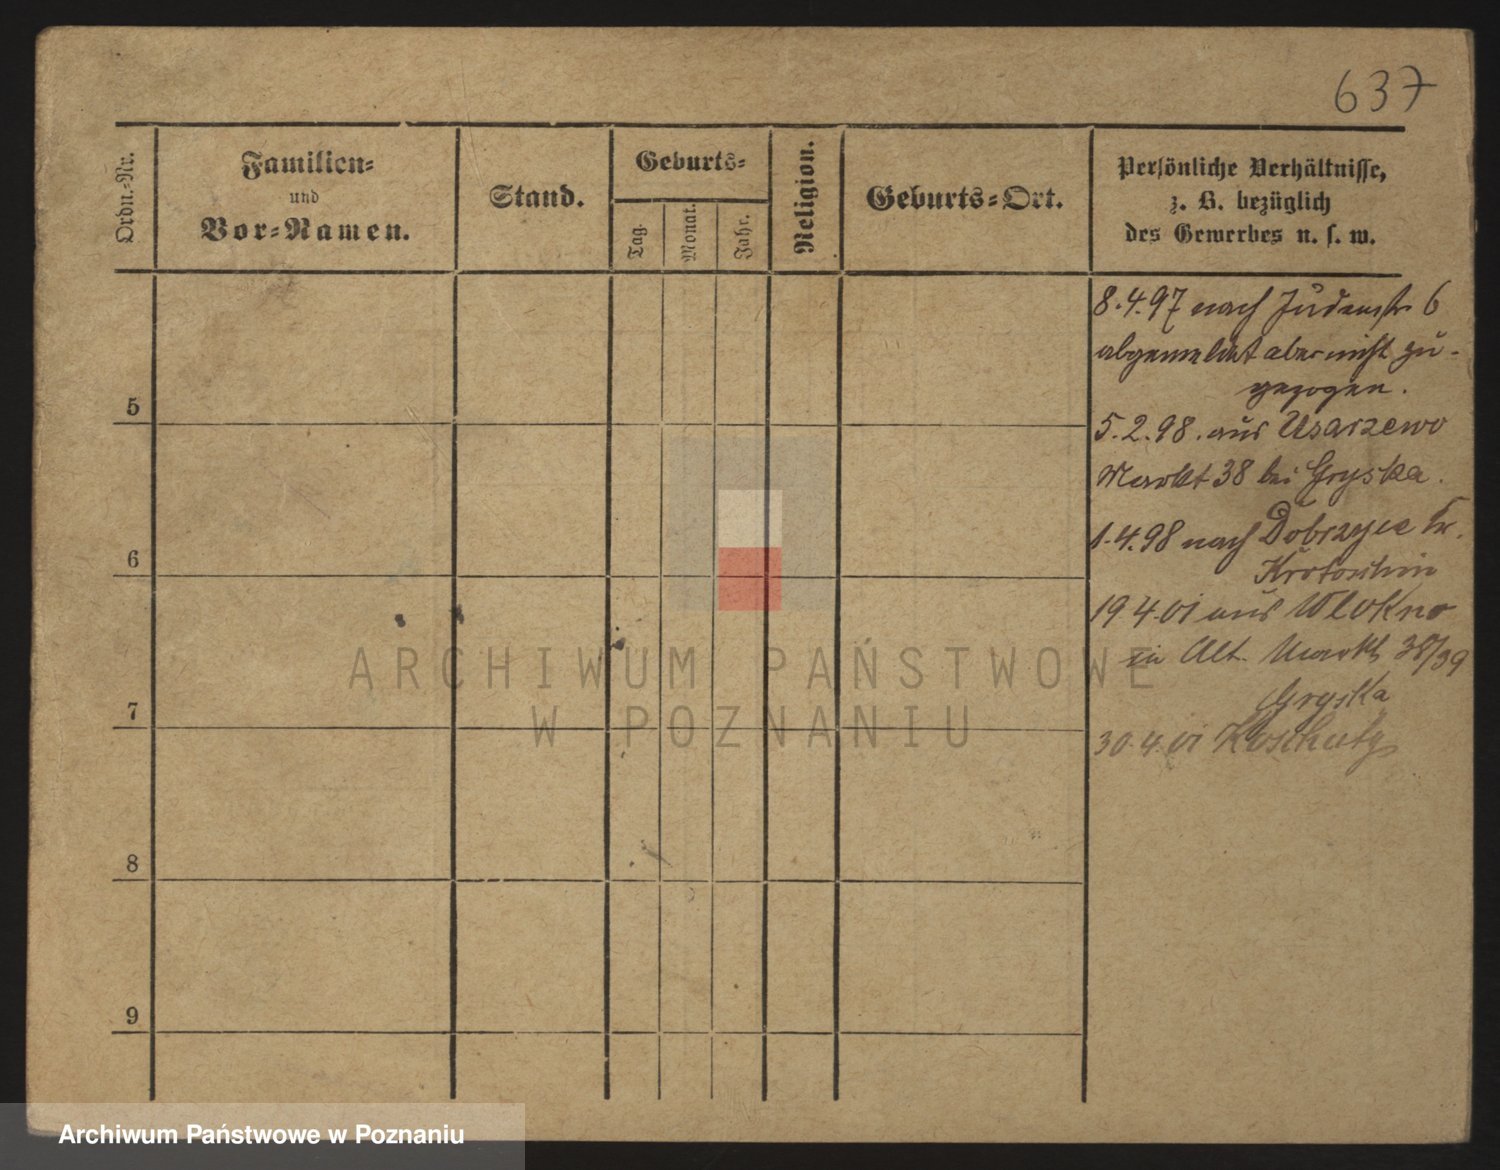 637
Ordn.-Nr.
Familien-
und
Vor-Namen.
Stand.
Geburts-
Tag.
Monat.
Jahr.
Religion.
Geburts-Ort.
Persönliche Verhältnisse,
z. B. bezüglich
des Gewerbes u. s. w.
8.4.97 nach Judenstr 6
abgemeldet aber nicht zu-
gezogen.
5
5.2.98. aus Usarzewo
Markt 38 bei Gryska.
6
1.4.98 nach Dobrzyca Kr.
Krotoschin
19 4.01 aus Wlokno
in Alt. Markt 38/39
Gryska
7
30.4.01 Koschutz
8
9
ARCHIWUM PAŃSTWOWE
W POZNANIU
Archiwum Państwowe w Poznaniu